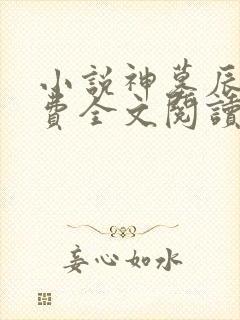 小説神墓辰
費全文閱讀
妄心如水